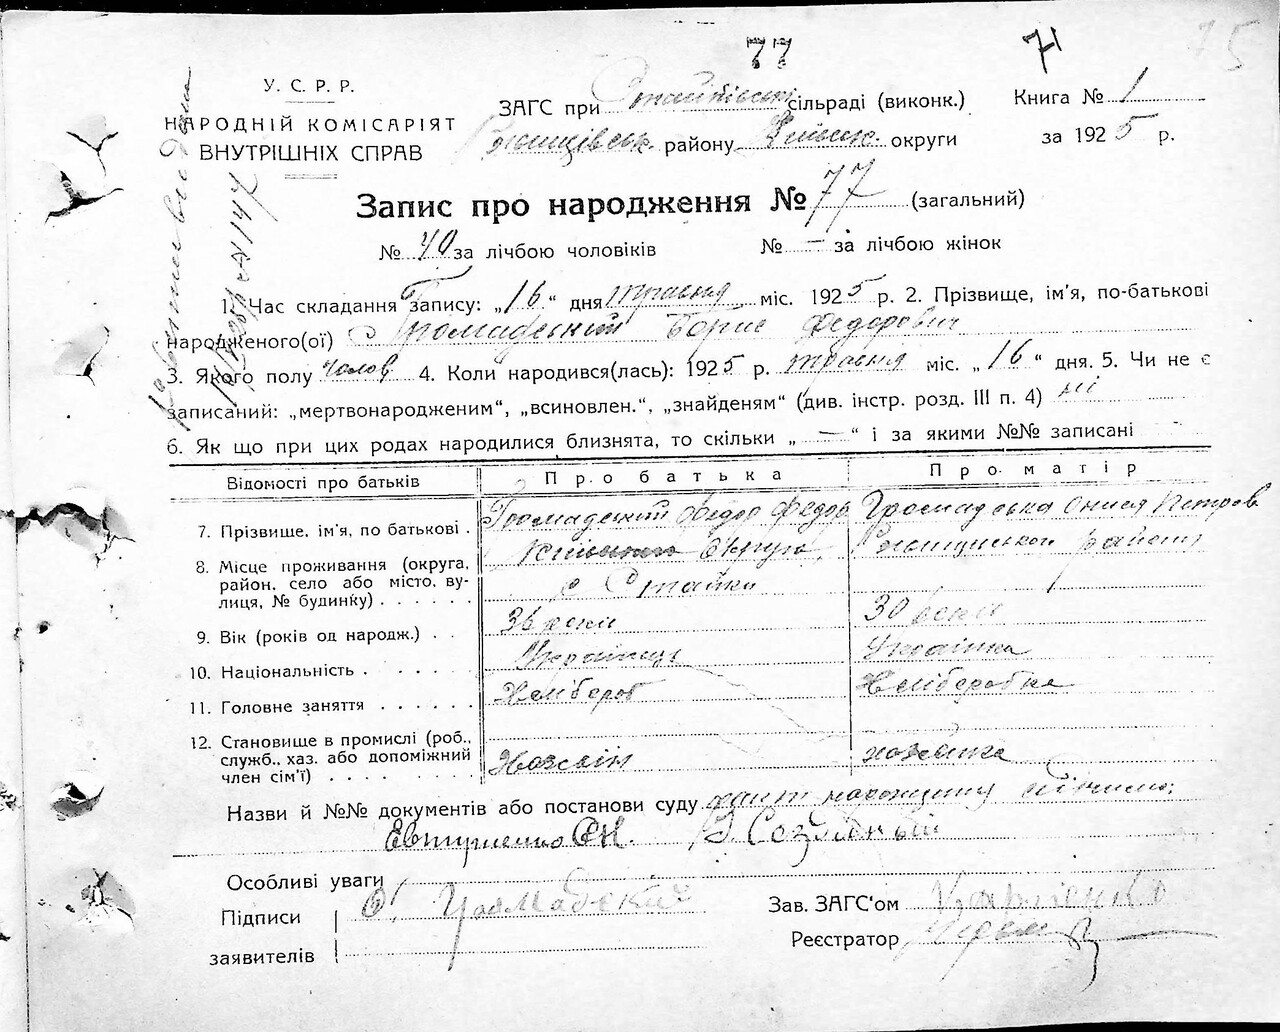 77
71
75
У. С. Р. Р.
НАРОДНІЙ КОМІСАРІЯТ
ВНУТРІШНІХ СПРАВ
ЗАГС при Стайківськ. сільраді (виконк.)
Ржищівськ. району Київськ. округи
Книга № 1
за 1925 р.
Запис про народження № 77 (загальний)
№ 40 за лічбою чоловіків № — за лічбою жінок
1. Час складання запису: „16“ дня травня міс. 1925 р. 2. Прізвище, ім'я, по-батькові
народженого(ої) Громадський Борис Федорович
3. Якого полу чолов 4. Коли народився(лась): 1925 р. травня міс. „16“ дня. 5. Чи не є
записаний: „мертвонародженим“, „всиновлен.“, „знайденям“ (див. інстр. розд. III п. 4) ні
6. Як що при цих родах народилися близнята, то скільки „—“ і за якими №№ записані
Відомості про батьків Про батька Про матір
7. Прізвище, ім'я, по батькові . Громадський Федор Федор Громадська Онися Петров.
8. Місце проживання (округа, Київська Округа, району
район, село або місто, ву- с Стайки
лиця, № будинку) . . . . . .
9. Вік (років од народж.) . . 36 роки 30 роки
10. Національність . . . . . Українець Українка
11. Головне заняття . . . . . . Хлібороб Хліборобка
12. Становище в промислі (роб.,
служб., хаз. або допоміжний Хозяїн хозяйка
член сім'ї) . . . . . . . .
Назви й №№ документів або постанови суду факт
Евтушенко
Особливі уваги
Підписи Громадский
заявителів
Зав. ЗАГС'ом Карпенко
Реєстратор